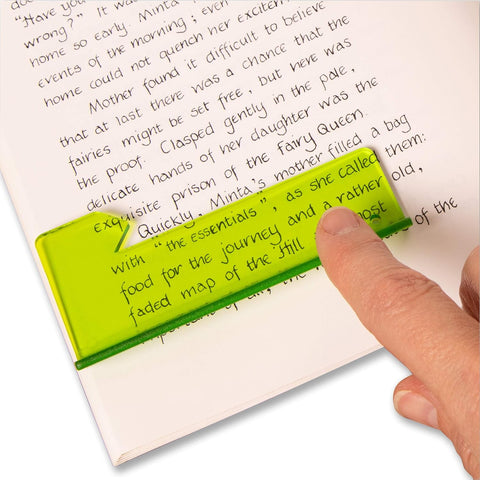 "Have you
wrong?" It was
home so early. Minta
events of the morning; even
home could not quench her excitem
Mother found it difficult to believe
that at last there was a chance that the
fairies might be set free, but here was
the proof. Clasped gently in the pale,
delicate hands of her daughter was the
exquisite prison of the fairy Queen.
Quickly, Minta's mother filled a bag
with "the essentials", as she called them:
food for the journey and a rather old,
faded map of the Hill most
of the